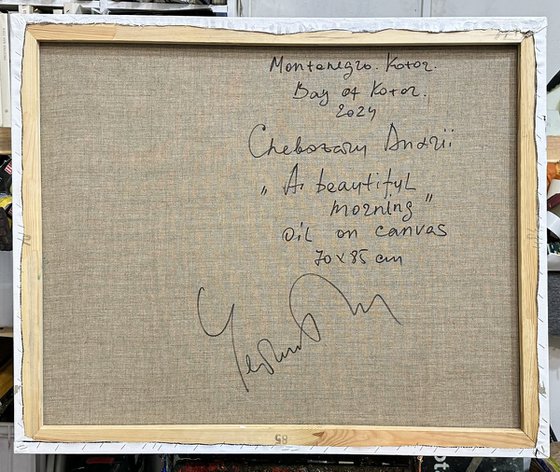 Montenegro. Kotor.
Bay of Kotor.
2024
Chebotaru Andrii
„A beautiful
morning"
oil on canvas
70x85 cm
85